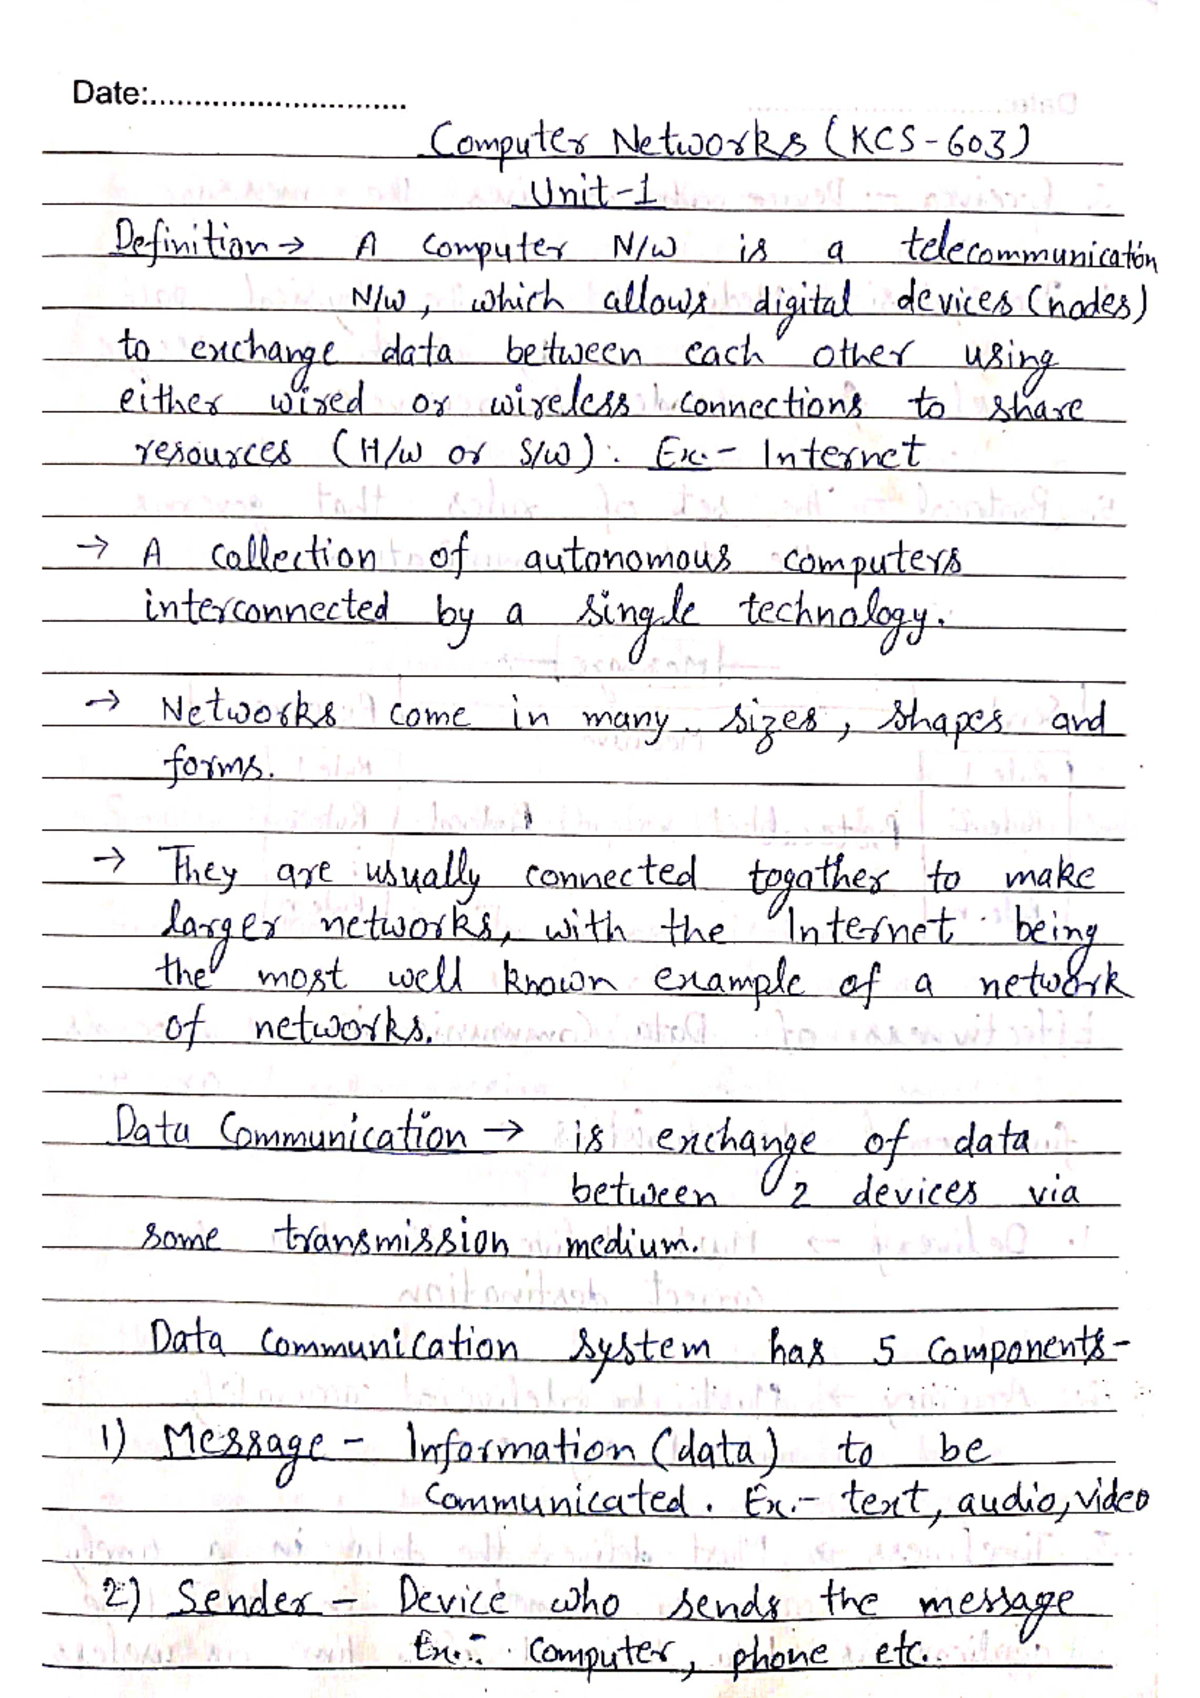 Date:.............................
Computer Networks (KCS-603)
Unit-1
Definition → A computer N/W is a telecommunication
N/W, which allows digital devices (nodes)
to exchange data between each other using
either wired or wireless connections to share
resources (H/W or S/W). Ex:- Internet
→ A collection of autonomous computers
interconnected by a single technology.
→ Networks come in many sizes, shapes and
forms.
→ They are usually connected togather to make
larger networks, with the Internet being
the most well known example of a network
of networks.
Data Communication → is exchange of data
between 2 devices via
some transmission medium.
Data Communication system has 5 Components-
1) Message - Information (data) to be
Communicated. Ex.- text, audio, video
2) Sender - Device who sends the message
Ex.:- computer, phone etc.